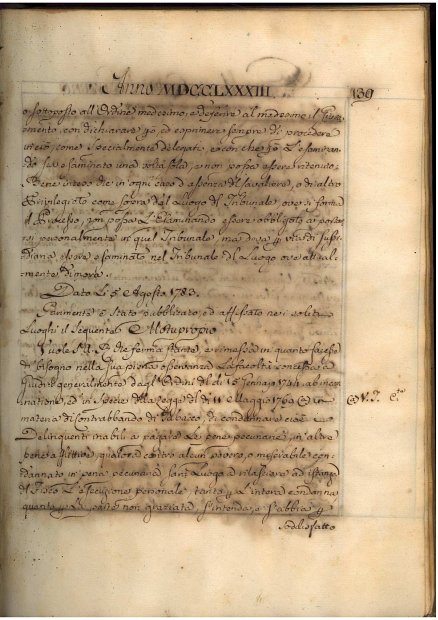 Anno MDCCLXXXIII.
139
o sottoposto all'Ordine medesimo, e deferire al medesimo il Giura-
mento, con dichiarare però, ed esprimere sempre di procedere
in ciò, come specialmente delegati, e con che però l'esaminan-
do sia esaminato una volta sola, e non possa essere ritenuto.
Bene inteso che in ogni caso d'assenza del Cavaliere, o di altro
Privilegiato come sopra dal Luogo del Tribunale ove si forma
il Processo, non possa l'Esaminando essere obbligato a portar-
si personalmente in quel Tribunale, ma dovrà in via di sussi-
diaria essere esaminato nel Tribunale del Luogo ove attual-
mente dimora.
Dato li 5 Agosto 1783.
Parimente è stato pubblicato, ed affissato nei soliti
Luoghi il seguente Motuproprio
Vuole S.A.R. che ferma stante, e rimessa in quanto facesse
di bisogno nella sua piena osservanza la facoltà concessa a
Giudici generalmente dagl'Ordini de di 15 Gennajo 1744 ab Incar-
nazione, ed in specie dalla Legge de di 11 Maggio 1769 in
materia di Contrabbando di Tabacco, di condannare
Delinquenti inabili a pagare le pene pecuniarie, in altre
pene afflittive, qualora contro alcun povero, o miserabile con-
dannato in pena pecuniaria sarà luogo a rilasciare ad istanza
del Fisco l'esecuzione personale, tanto per l'intera condanna
quanto per la parte non graziata, s'intenda, e s'abbia per
sodisfatto